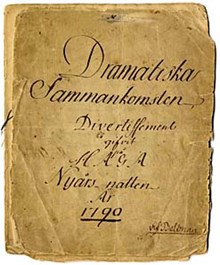 Dramatiska
Sammankomsten
Divertissement
gifvit
på
M A G A
Nyårs natten
År
1790
af Bellman